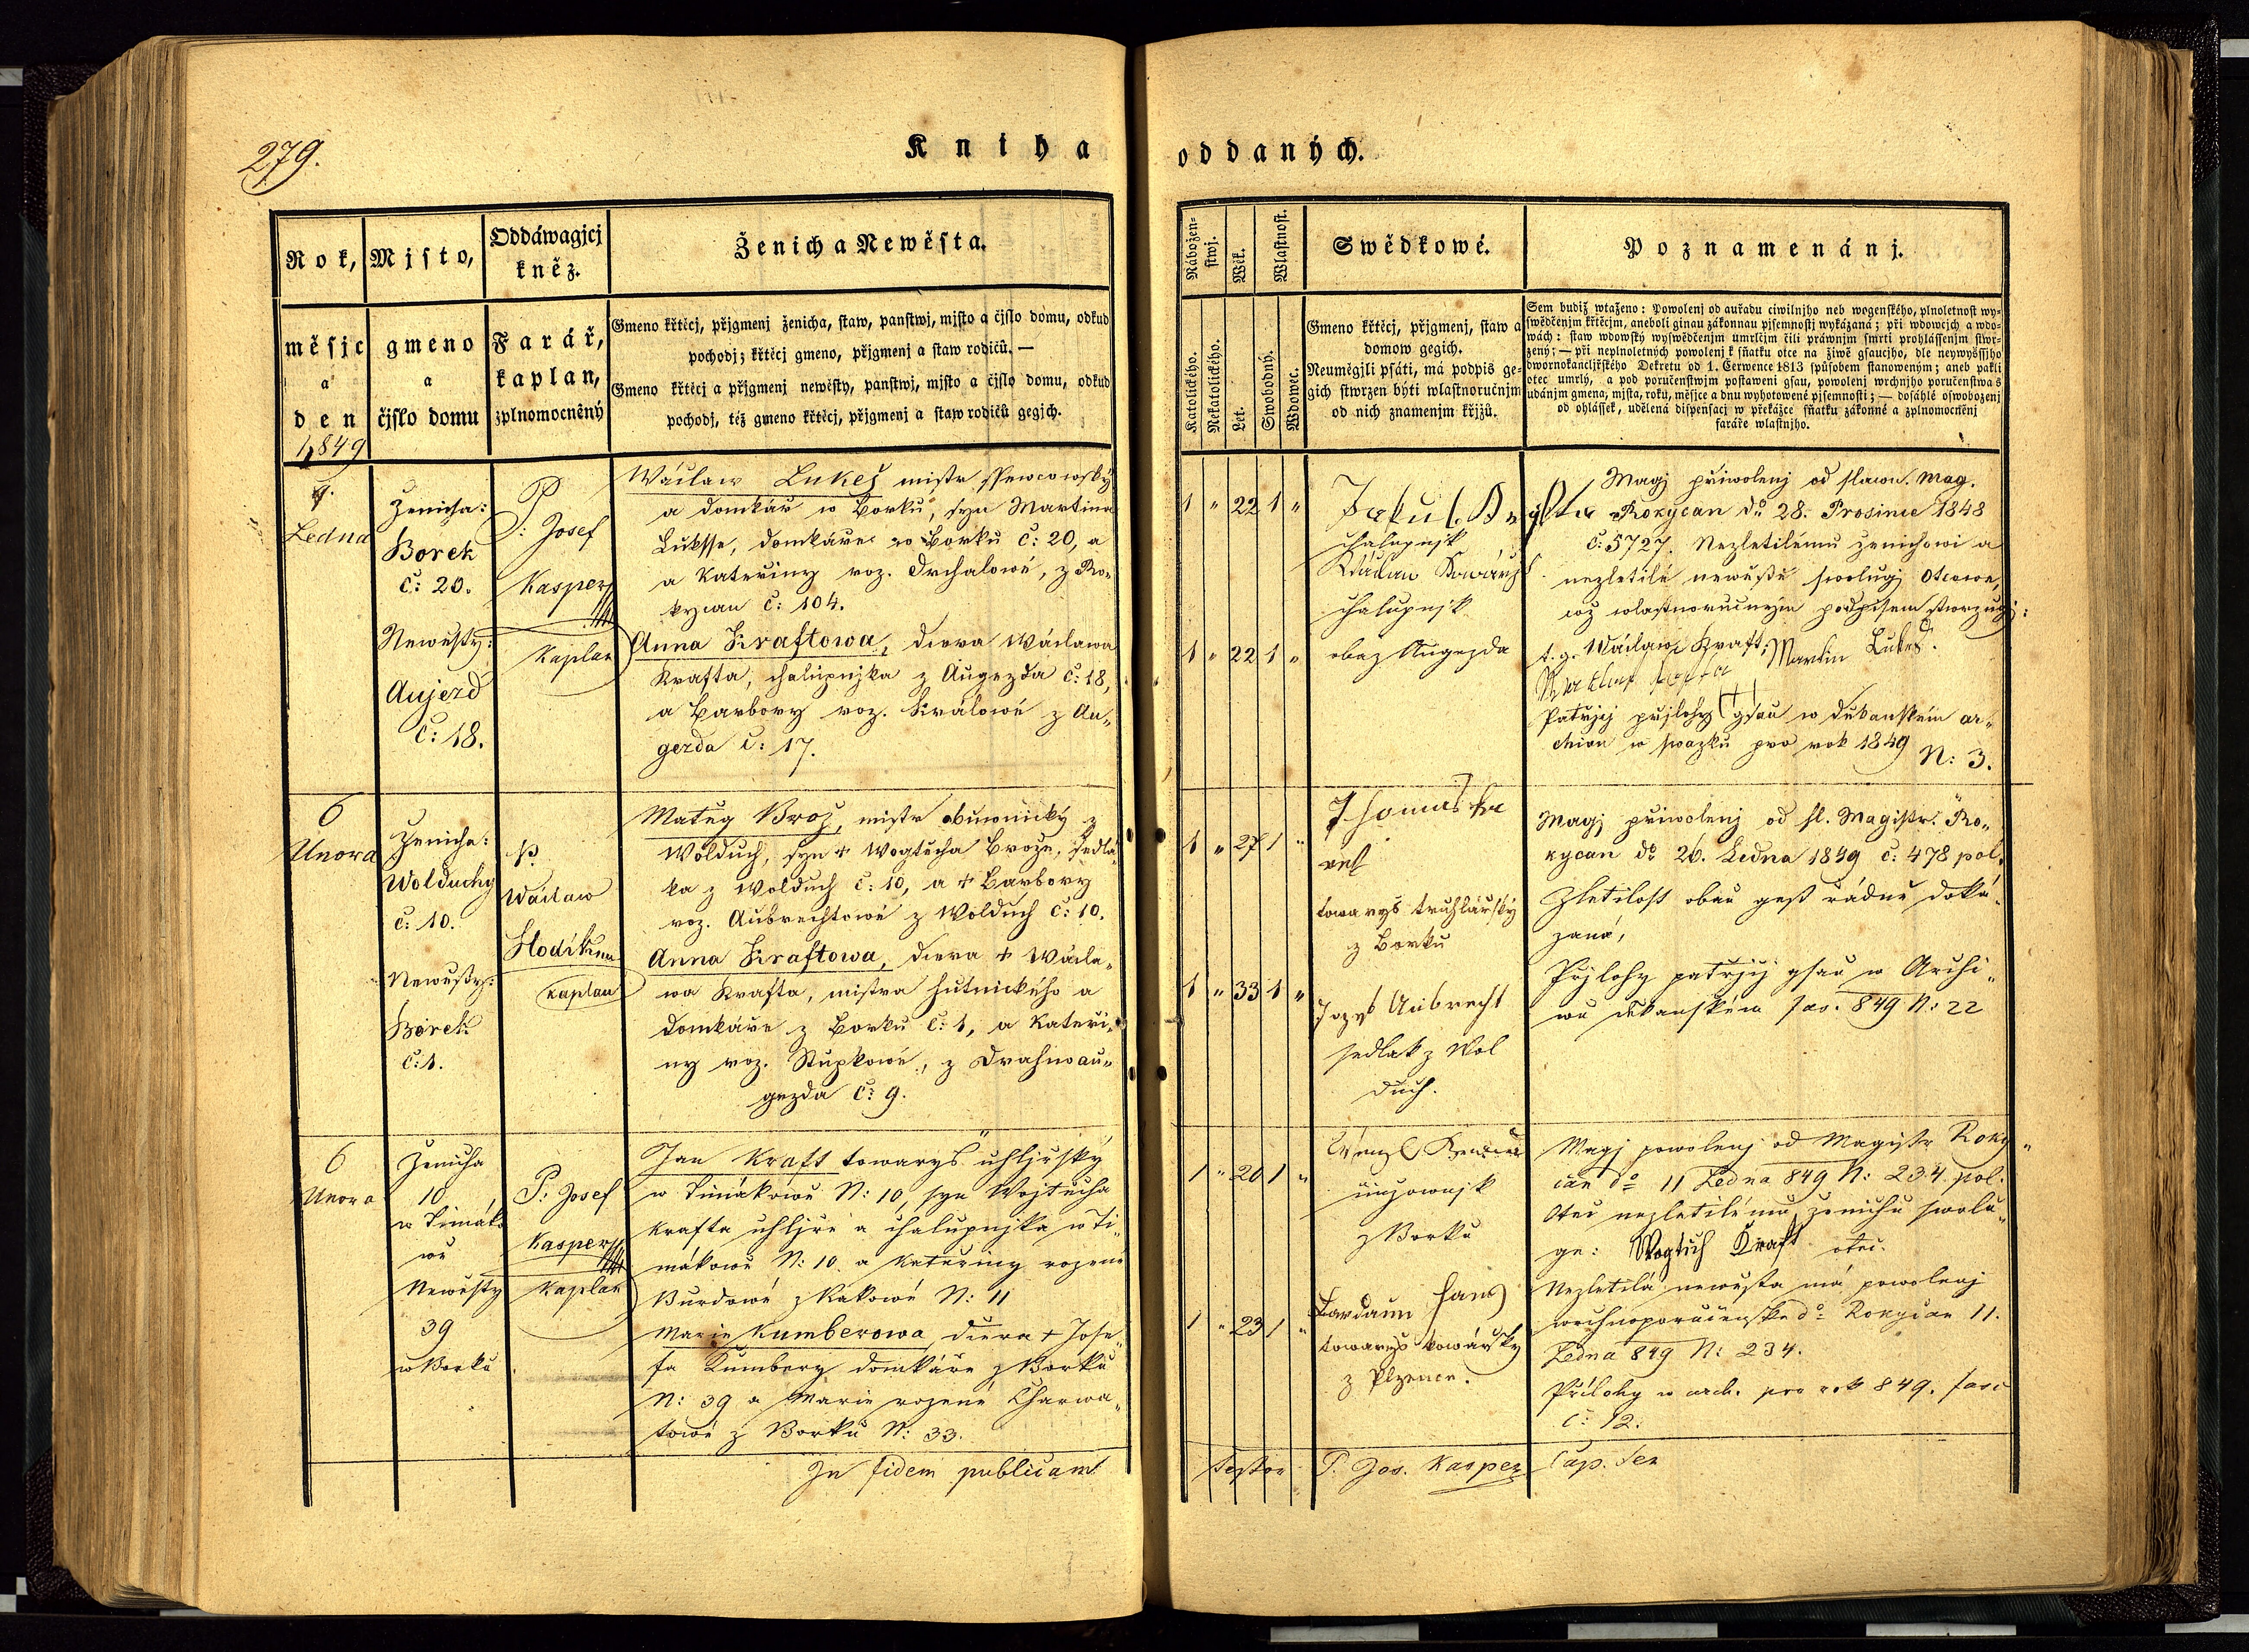 279.
Kniha oddaných.
Rok,
měsjc
a
den
1849
Mjsto,
gmeno
a
čjslo domu
Oddáwagjcj
kněz.
Farář,
kaplan,
zplnomocněný
Ženich a Newěsta.
Gmeno křtěcj, přjgmenj ženicha, staw, panstwj, mjsto a čjslo domu, odkud
pochodj; křtěcj gmeno, přjgmenj a staw rodičů. —
Gmeno křtěcj a přjgmenj newěsty, panstwj, mjsto a čjslo domu, odkud
pochodj, též gmeno křtěcj, přjgmenj a staw rodičů gegjch.
Nábožen-
stwj.
Katolického.
Nekatolického.
Wěk.
Let.
Wlastnost.
Swobodný.
Wdowec.
Swědkowé.
Gmeno křtěcj, přjgmenj, staw a
domow gegich.
Neuměgjli psáti, má podpis ge-
gich stwrzen býti wlastnoručnjm
od nich znamenjm křjžů.
Poznamenánj.
Sem budiž wtaženo: Powolenj od auřadu ciwilnjho neb wogenského, plnoletnost wy-
swědčenjm křtěcjm, aneboli ginau zákonnau pjsemnostj wykázaná; při wdowcjch a wdo-
wách: staw wdowský wyswědčenjm umrlčjm čili práwnjm smrti prohlássenjm stwr-
zený; — při neplnoletných powolenj k sňatku otce na žiwě gsaucjho, dle neywyššjho
dwornokancljřského Dekretu od 1. Čerwence 1813 spůsobem stanoweným; aneb pakli
otec umrlý, a pod poručenstwjm postaweni gsau, powolenj wrchnjho poručenstwa s
udánjm gmena, mjsta, roku, měsjce a dnu wyhotowené pjsemnosti; — dosáhlé oswobozenj
od ohlášek, udělená dispensacj w překážce sňatku zákonné a zplnomocněnj
faráře wlastnjho.
9.
Ledna
Ženicha:
Borek
č: 20.
Newěsty:
Aujezd
č: 18.
P.
P: Josef
Kasper
Kaplan
Wáclaw Lukeš mistr ssewcowský
a domkář w Borku, syn Martina
Luksse, domkáře w Borku č: 20, a
a Kateřiny roz. Drchalowé, z Ro-
kycan č: 104.
Anna Kraftowa, dcera Wáclawa
Krafta, chalupnjka z Augezda č: 18,
a Barbory roz. Králowé z Au-
gezda č: 17.
1 " 22 1 "
1 " 22 1 "
Jakub
chalupnjk
Wáclaw Kowářjk
chalupnjk
oba z Augezda
Magj přiwolenj od slawn. Mag.
Rokycan do 28. Prosince 1848
č: 5727. Nezletilému ženichowi a
nezletilé newěstě swolugj Otcowe,
což wlastnoručnjm podpisem stwrzugj:
t. g. Wáclaw Kraft; Martin Lukeš.
Patřjcj přjlohy gsau w děkanském ar-
chiwu w swazku pro rok 1849 N: 3.
6
Unora
Ženicha:
Wolduchy
č: 10.
Newěsty:
Borek
č: 1.
P.
Wáclaw
Kaplan
Matěg Brož, mistr obuwnický z
Wolduch, syn + Wogtěcha Brože, sedlá-
ka z Wolduch č: 10, a + Barbory
roz. Aubrechtowé z Wolduch č: 10.
Anna Kraftowa, dcera + Wácla-
wa Krafta, mistra hutnického a
domkáře z Borku č: 1, a Kateři-
ny roz. Stupkowé, z Drahnoau-
gezda č: 9.
1 " 27 1 "
1 " 33 1 "
Thomas
towaryš truhlářský
z Borku
Aubrecht
sedlak z Wol
duch.
Magj přiwolenj od sl. Magistr. Ro-
kycan do 26. Ledna 1849 č: 478 pol.
Zletilost obau gest řádně doká-
zaná,
Přjlohy patřjcj gsau w Archi-
wu děkanském fas. 849 N: 22
6
Unora
Ženicha
10
w Timáko
wě
Newěsty
39
w Borku
P: Josef
Kasper
Kaplan
Jan Kraft towaryš uhljřský
w Timákowě N: 10, syn Wojtěcha
Krafta uhljře a chalupnjka w Ti-
mákowě N: 10 a Kateřiny rozené
Burdowé z Kakowé N: 11
Marie Kumberowa dcera + Jose-
fa Kumbery domkáře z Borku
N: 39 a Marie rozené Charwa-
towé z Borku N: 33.
1 " 20 1 "
1 " 23 1 "
Wenzl
z Borku
towaryš kowářský
z Plzence.
Magj powolenj od Magistr Roky-
can do 11 Ledna 849 N: 234 pol.
Otec nezletilému ženichu swolu-
ge: Wogtěch Kraft otec.
Nezletilá newěsta má powolenj
wrchnoporučenské do Rokycan 11.
Ledna 849 N: 234.
Přílohy w arch. pro rok 849. fasc
č: 12.
In fidem publicam
testor P. Jos. Kasper Cap. Sen